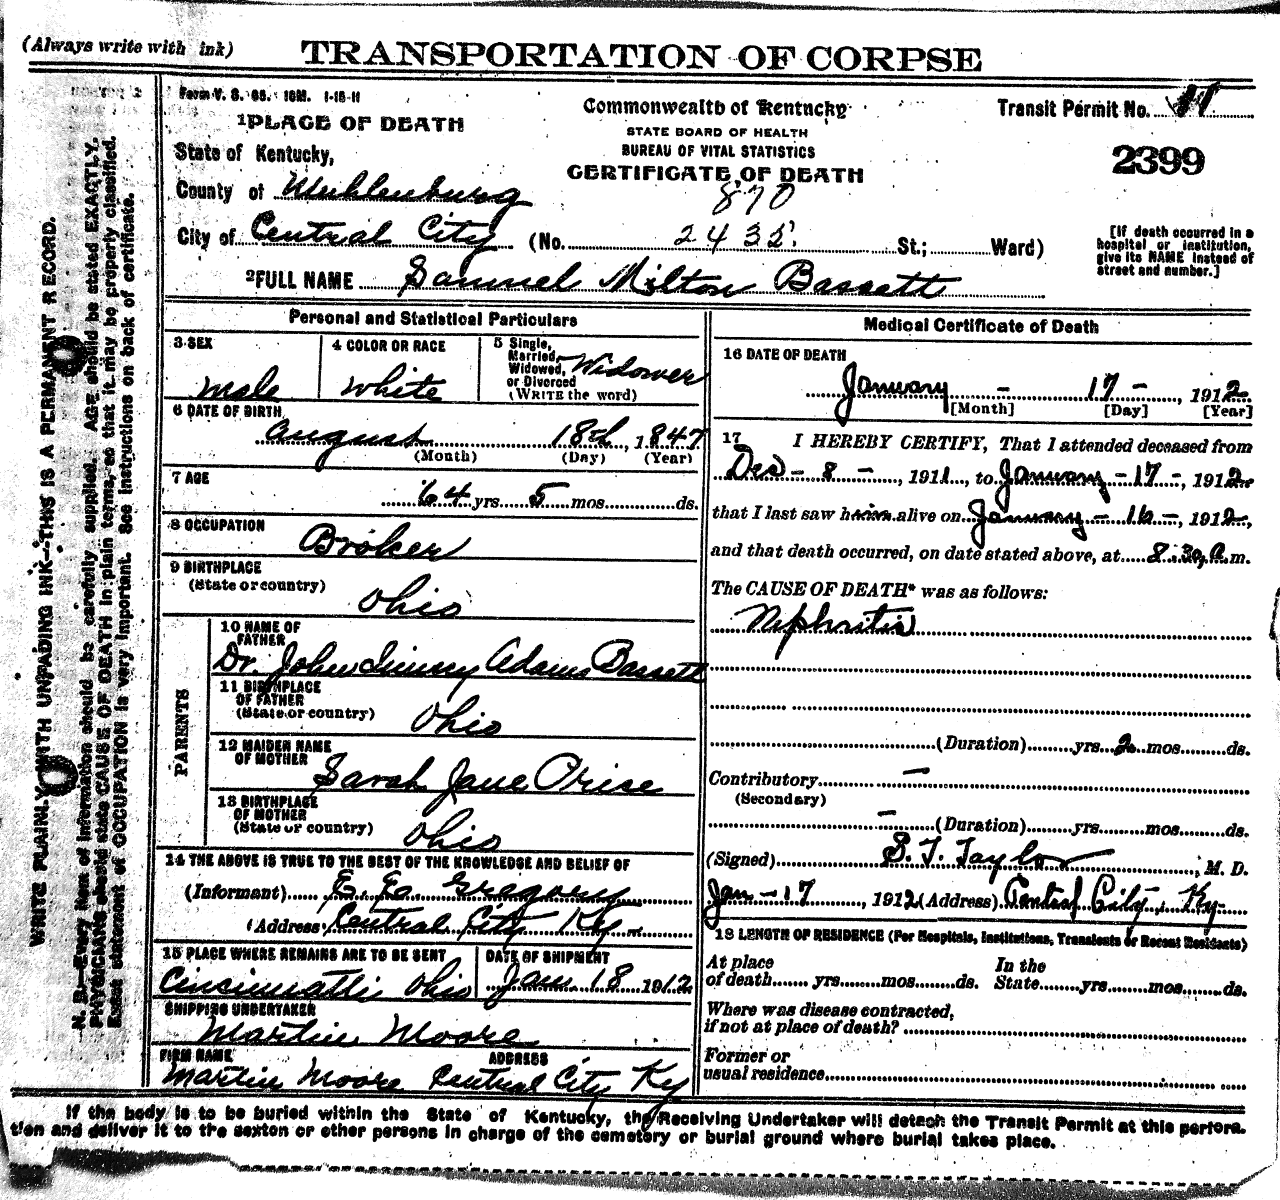 (Always write with ink)
TRANSPORTATION OF CORPSE
Form V. S. 1-15-11
1 PLACE OF DEATH
State of Kentucky,
County of Muhlenburg
City of Central City (No. 2435 St.; Ward)
Commonwealth of Kentucky
STATE BOARD OF HEALTH
BUREAU OF VITAL STATISTICS
CERTIFICATE OF DEATH
870
Transit Permit No.
2399
[If death occurred in a
hospital or institution,
give its NAME instead of
street and number.]
2 FULL NAME Samuel Milton Bassett
Personal and Statistical Particulars
3 SEX
Male
4 COLOR OR RACE
White
5 Single,
Married,
Widowed,
or Divorced
(WRITE the word)
Widower
6 DATE OF BIRTH
August 18th, 1847
(Month) (Day) (Year)
7 AGE
64 yrs. 5 mos. ds.
8 OCCUPATION
Broker
9 BIRTHPLACE
(State or country)
Ohio
PARENTS
10 NAME OF
FATHER
Dr. John Adams Bassett
11 BIRTHPLACE
OF FATHER
(State or country)
Ohio
12 MAIDEN NAME
OF MOTHER
Sarah Jane Price
13 BIRTHPLACE
OF MOTHER
(State or country)
Ohio
14 THE ABOVE IS TRUE TO THE BEST OF THE KNOWLEDGE AND BELIEF OF
(Informant) Gregory
(Address) Central City Ky
15 PLACE WHERE REMAINS ARE TO BE SENT
Cincinnatti Ohio
DATE OF SHIPMENT
Jan 18 1912
SHIPPING UNDERTAKER
Martin Moore
FIRM NAME ADDRESS
Martin Moore Central City Ky
Medical Certificate of Death
16 DATE OF DEATH
January - 17 -, 1912
[Month] [Day] [Year]
17 I HEREBY CERTIFY, That I attended deceased from
Dec - 8 -, 1911, to January - 17 -, 1912,
that I last saw him alive on January - 16 -, 1912,
and that death occurred, on date stated above, at 8:30 a.m.
The CAUSE OF DEATH* was as follows:
Nephritis
(Duration) yrs. 2 mos. ds.
Contributory -
(Secondary)
- (Duration) yrs. mos. ds.
(Signed) S. T. Taylor, M. D.
Jan - 17, 1912 (Address) Central City, Ky
18 LENGTH OF RESIDENCE (For Hospitals, Institutions, Transients or Recent Residents)
At place
of death yrs. mos. ds.
In the
State yrs. mos. ds.
Where was disease contracted,
if not at place of death?
Former or
usual residence
WRITE PLAINLY WITH UNFADING INK—THIS IS A PERMANENT RECORD.
N. B.—Every item of information should be carefully supplied. AGE should be stated EXACTLY.
PHYSICIANS should state CAUSE OF DEATH in plain terms, so that it may be properly classified.
Exact statement of OCCUPATION is very important. See instructions on back of certificate.
If the body is to be buried within the State of Kentucky, the Receiving Undertaker will detach the Transit Permit at this perfora-
tion and deliver it to the sexton or other persons in charge of the cemetery or burial ground where burial takes place.